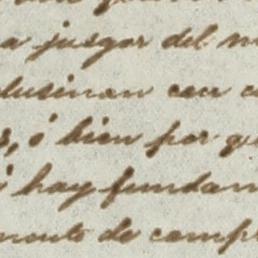 a jusgar del m
lusinan con c
s, ó bien por q
i hay fundam
monto de comp